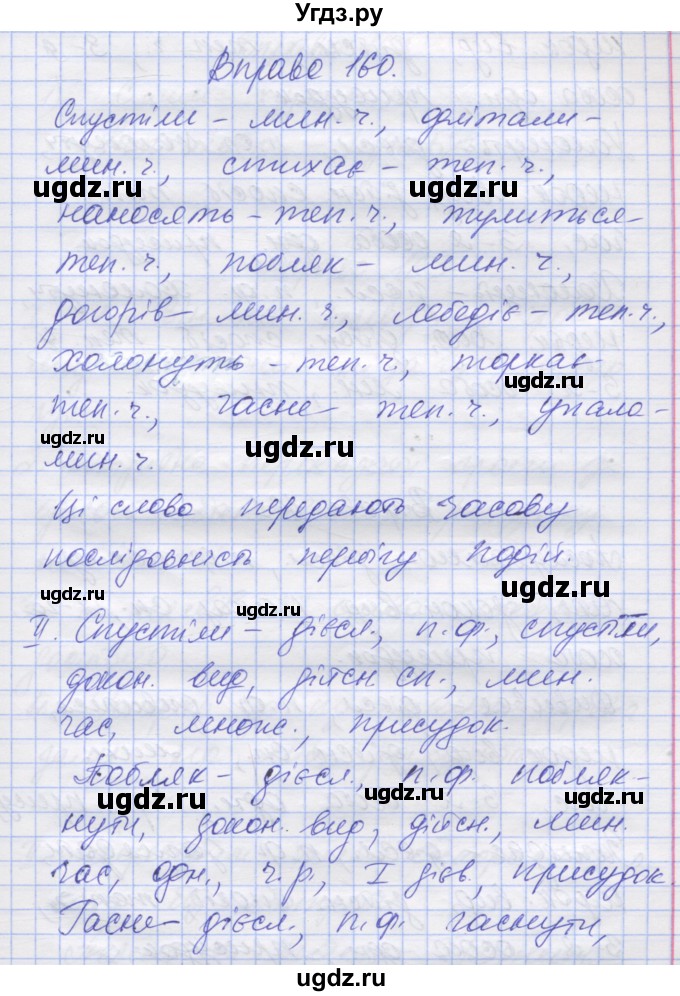 Угдз.ру
Вправа 160.
Спустіли - мин. ч., долітали -
мин. ч., стихає - теп. ч.,
ugdz.ru ugdz.ru
наносять - теп. ч., тулиться -
теп. ч., побляк - мин. ч.,
ugdz.ru ugdz.ru
догорів - мин. ч., лебедіє - теп. ч.,
холонуть - теп. ч., торкає -
ugdz.ru
теп. ч., гасне - теп. ч., упало -
ugdz.ru ugdz.ru
мин. ч.
Ці слова передають часову
послідовність перебігу подій.
ugdz.ru ugdz.ru ugdz.ru
II. Спустіли - дієсл., п. ф., спустіти,
докон. вид, дійсн сп., мин.
час, множ., присудок.
Побляк - дієсл., п. ф. побляк-
ugdz.ru ugdz.ru ugdz.ru
нути, докон. вид, дійсн., мин.
час, одн., ч. р., I дієв., присудок.
Гасне - дієсл., п. ф. гаснути,
ugdz.ru